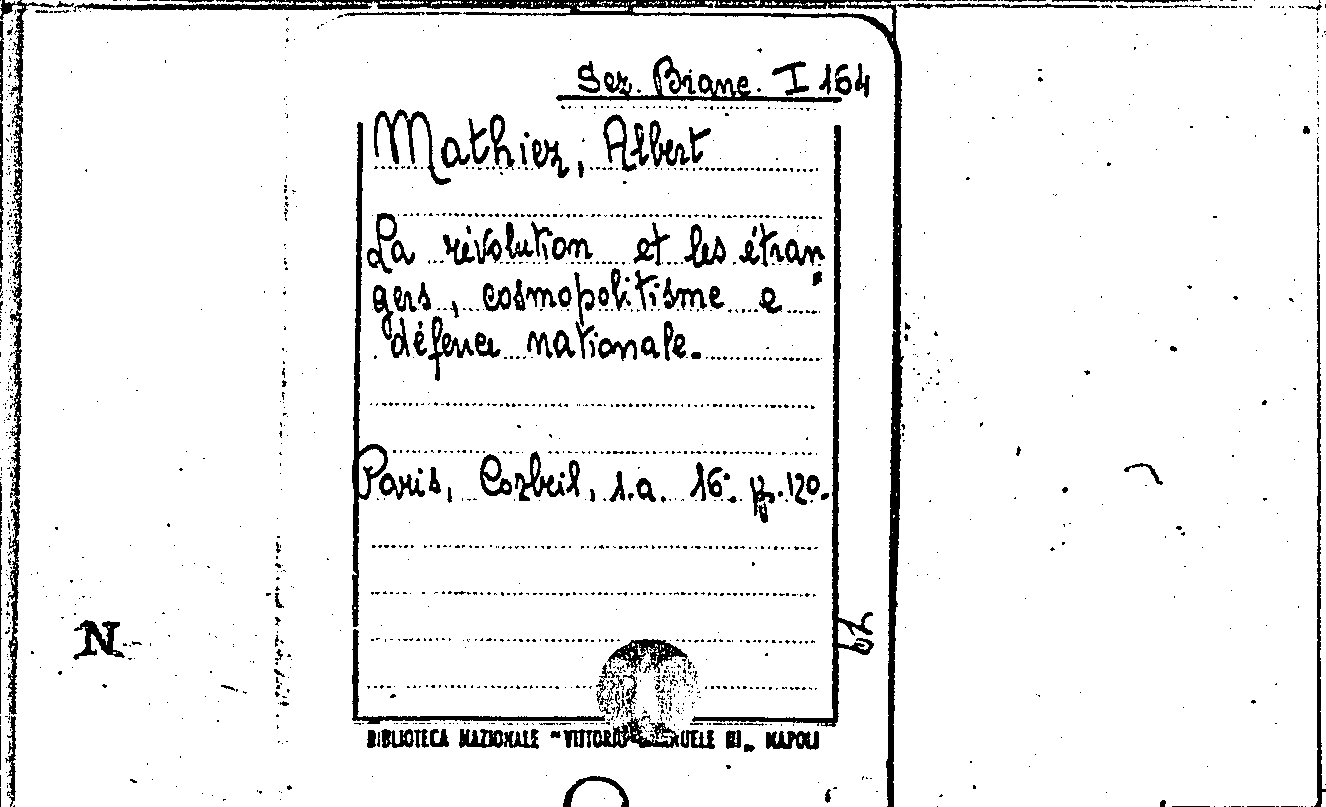 Sez. Branc. I 164
Mathiez, Albert
La révolution et les étran
gers, cosmopolitisme e
défence nationale.
Paris, Corbeil, s.a. 16°. pp. 120.
N
BIBLIOTECA NAZIONALE "VITTORIO EMANUELE III„ NAPOLI